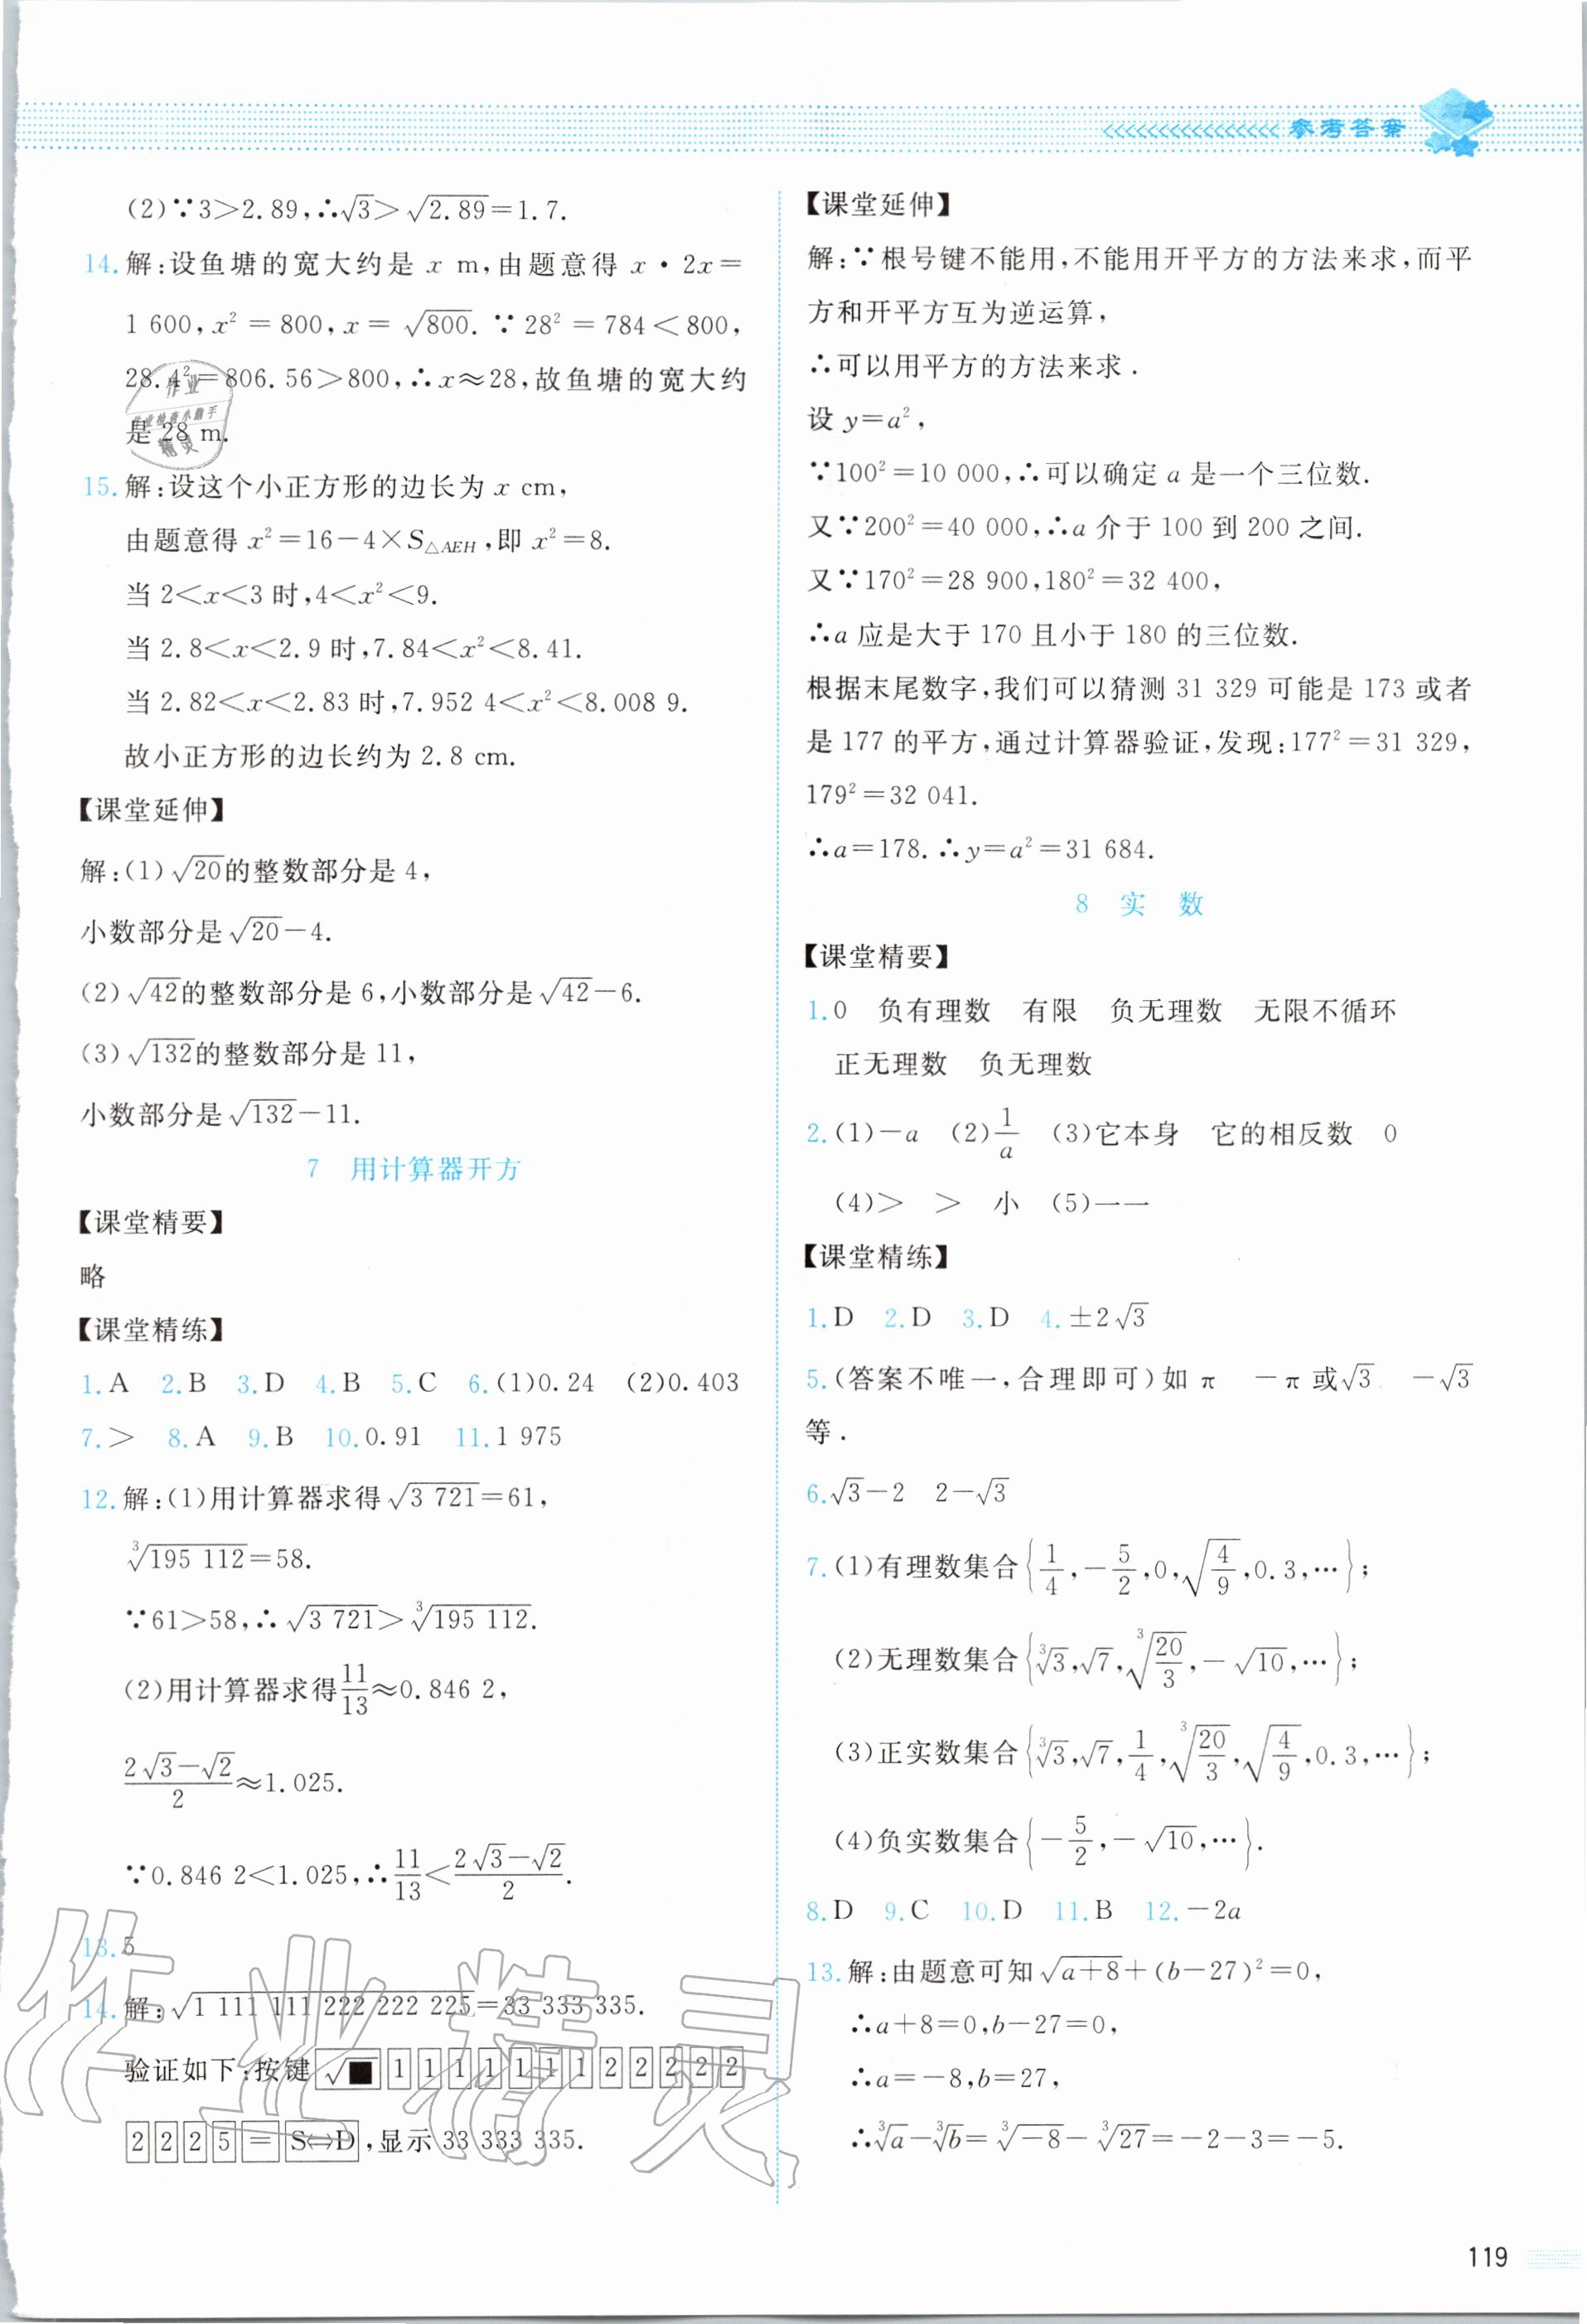 参考答案
(2)∵3>2.89,∴√3>√2.89=1.7.
14.解:设鱼塘的宽大约是 x m,由题意得 x·2x=
1 600,x²=800,x=√800.∵28²=784<800,
28.4²=806.56>800,∴x≈28,故鱼塘的宽大约
是 28 m.
15.解:设这个小正方形的边长为 x cm,
由题意得 x²=16-4×S△AEH,即 x²=8.
当 2<x<3 时,4<x²<9.
当 2.8<x<2.9 时,7.84<x²<8.41.
当 2.82<x<2.83 时,7.952 4<x²<8.008 9.
故小正方形的边长约为 2.8 cm.
【课堂延伸】
解:(1)√20的整数部分是 4,
小数部分是√20-4.
(2)√42的整数部分是 6,小数部分是√42-6.
(3)√132的整数部分是 11,
小数部分是√132-11.
7 用计算器开方
【课堂精要】
略
【课堂精练】
1.A 2.B 3.D 4.B 5.C 6.(1)0.24 (2)0.403
7.> 8.A 9.B 10.0.91 11.1 975
12.解:(1)用计算器求得√3 721=61,
∛195 112=58.
∵61>58,∴√3 721>∛195 112.
(2)用计算器求得11/13≈0.846 2,
(2√3-√2)/2≈1.025.
∵0.846 2<1.025,∴11/13<(2√3-√2)/2.
13.5
14.解:√1 111 111 222 222 225=33 333 335.
验证如下:按键 √■ 1 1 1 1 1 1 1 2 2 2 2 2
2 2 2 5 = S⇔D,显示 33 333 335.
【课堂延伸】
解:∵根号键不能用,不能用开平方的方法来求,而平
方和开平方互为逆运算,
∴可以用平方的方法来求.
设 y=a²,
∵100²=10 000,∴可以确定 a 是一个三位数.
又∵200²=40 000,∴a 介于 100 到 200 之间.
又∵170²=28 900,180²=32 400,
∴a 应是大于 170 且小于 180 的三位数.
根据末尾数字,我们可以猜测 31 329 可能是 173 或者
是 177 的平方,通过计算器验证,发现:177²=31 329,
179²=32 041.
∴a=178.∴y=a²=31 684.
8 实 数
【课堂精要】
1.0 负有理数 有限 负无理数 无限不循环
正无理数 负无理数
2.(1)-a (2)1/a (3)它本身 它的相反数 0
(4)> > 小 (5)一一
【课堂精练】
1.D 2.D 3.D 4.±2√3
5.(答案不唯一,合理即可)如 π -π 或√3 -√3
等.
6.√3-2 2-√3
7.(1)有理数集合{1/4,-5/2,0,√(4/9),0.3,…};
(2)无理数集合{∛3,√7,∛(20/3),-√10,…};
(3)正实数集合{∛3,√7,1/4,∛(20/3),√(4/9),0.3,…};
(4)负实数集合{-5/2,-√10,…}.
8.D 9.C 10.D 11.B 12.-2a
13.解:由题意可知√(a+8)+(b-27)²=0,
∴a+8=0,b-27=0,
∴a=-8,b=27,
∴∛a-∛b=∛-8-∛27=-2-3=-5.
119
作业
作业检查小助手
精灵
作业精灵